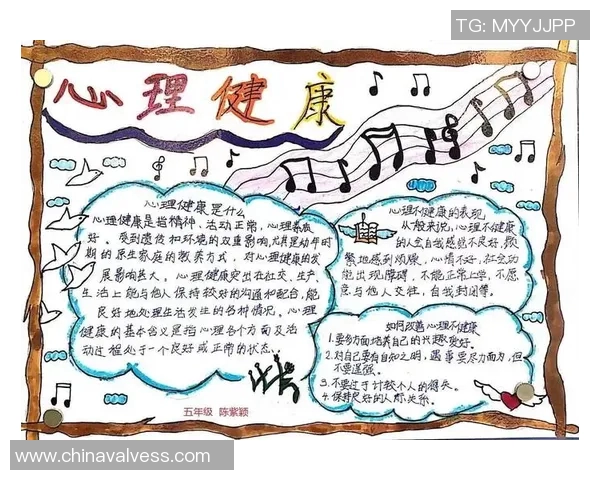 TG: MYYJJPP
心理健康
心理健康是什么
心理健康是指精神、活动正常,心理素质
好。受到遗传和环境的双重影响,尤其是幼年时
期的原生家庭的教养方式,对心理健康的发
展影响甚大。心理健康突出在社交、生产、
生活上能与他人保持较好的沟通和配合,能
良好地处理生活发生的各种情况。心理
健康的基本含义是指心理各个方面及活
动过程处于一个良好或正常的状态。
心理不健康的表现
从一般来说,心理不健康
的人会自我感觉不良好,频
繁地感到烦躁,心情不好,社会功
能出现障碍,不能正常上学,不愿
意与他人交往,自我封闭等。
如何改善心理不健康
1.要多方面培养自己的兴趣爱好。
2.对自己要有自知之明,遇事要尽力而为,但
不要逞强。
3.不要过于计较个人的得失。
4.保持良好的人际关系。
五年级 陈紫颖
www.chinavalvess.com